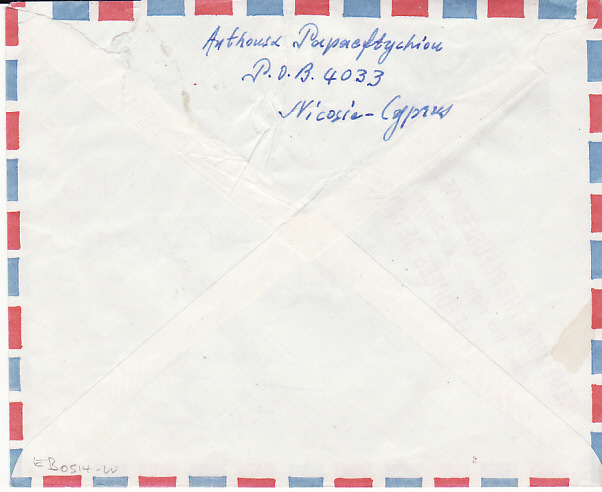 Anthousa Papaeftychiou
P.O.B. 4033
Nicosia - Cyprus
EB0514-W